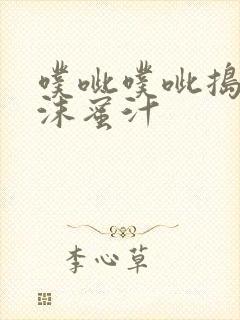 噗呲噗呲搗
沫蜜汁
李心草